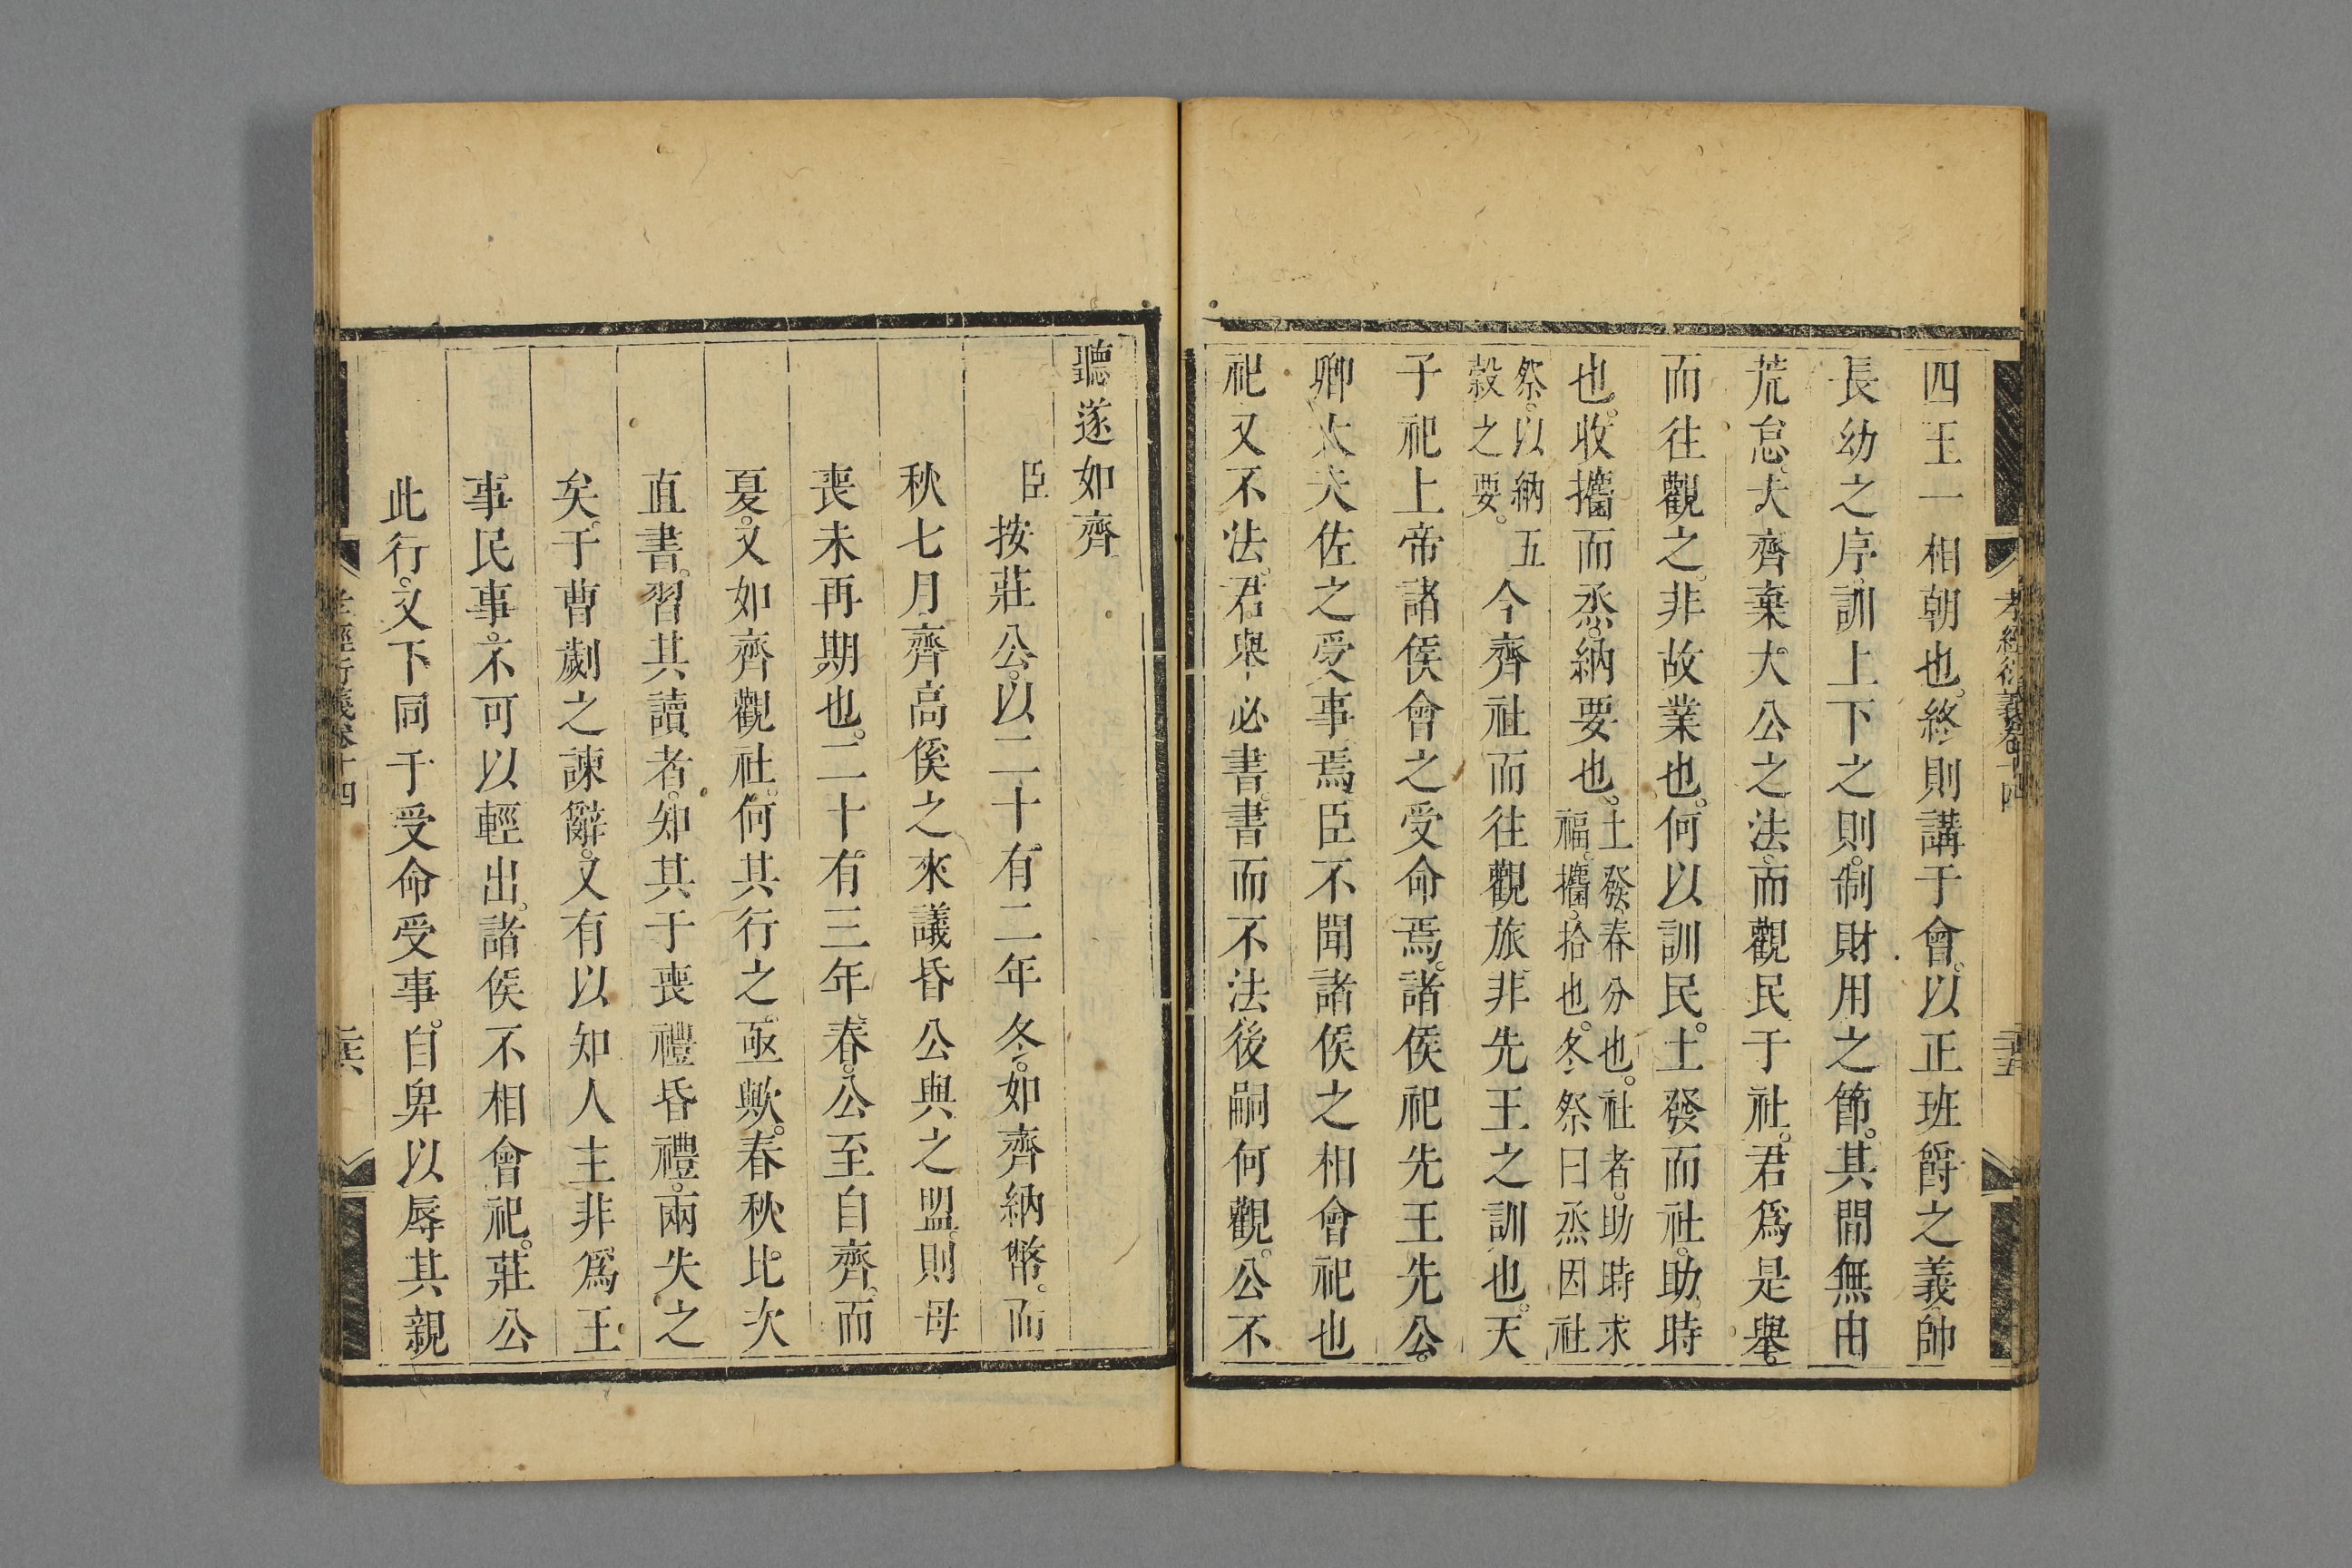 孝經衍義卷十四
二十五
四王一相朝也。終則講于會。以正班爵之義。帥
長幼之序。訓上下之則。制財用之節。其間無由
荒怠。夫齊棄太公之法。而觀民于社。君爲是舉。
而往觀之。非故業也。何以訓民。土發而社。助時
也。收攟而烝。納要也。土發。春分也。社者。助時求
福。攟。拾也。冬祭曰烝因社
祭。以納五
穀之要。今齊社而往觀旅。非先王之訓也。天
子祀上帝諸侯會之受命焉。諸侯祀先王先公。
卿大夫佐之受事焉。臣不聞諸侯之相會祀也
祀又不法。君舉必書。書而不法後嗣何觀。公不
聽遂如齊
臣按莊公。以二十有二年冬。如齊納幣。而
秋七月齊高傒之來議昏公與之盟。則母
喪未再期也。二十有三年春。公至自齊。而
夏。又如齊觀社。何其行之亟歟。春秋比次
直書。習其讀者。知其于喪禮昏禮。兩失之
矣。于曹劌之諫辭。又有以知人主非爲王
事民事。不可以輕出。諸侯不相會祀。莊公
此行。又下同于受命受事。自卑以辱其親
孝經衍義卷十四
二十六